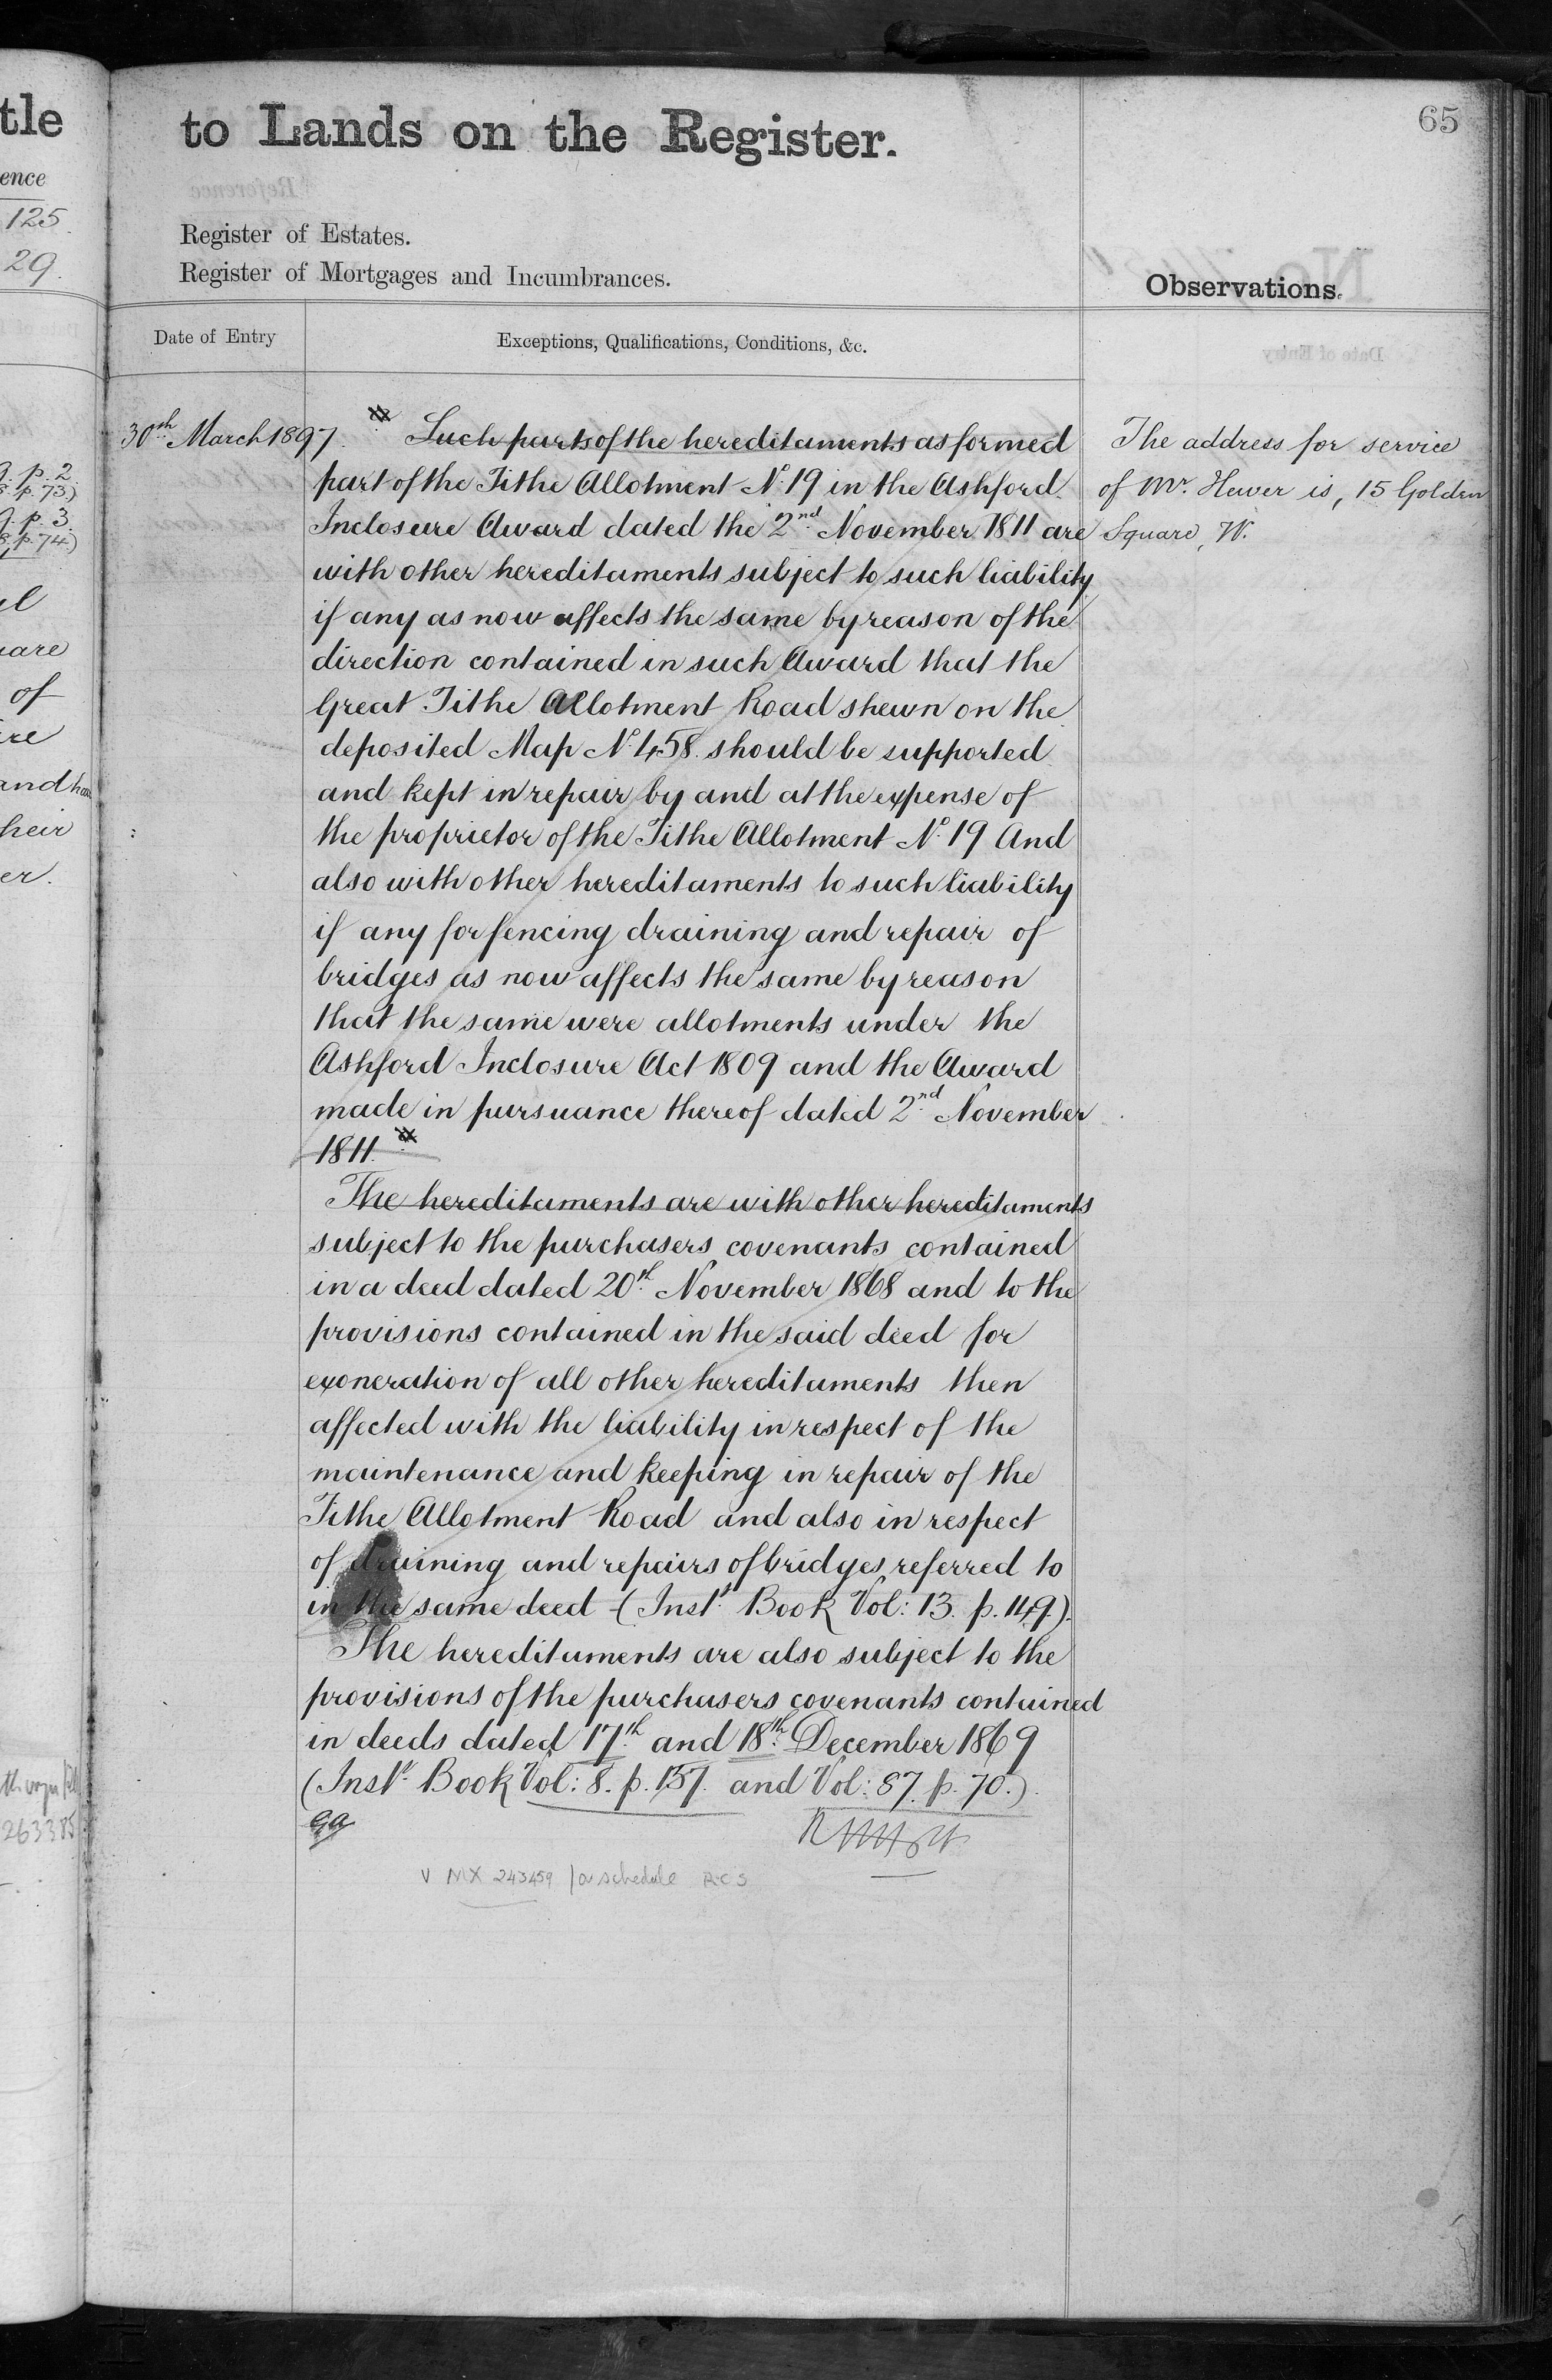 tle
ence
125.
29.
to Lands on the Register.
65
Register of Estates.
Register of Mortgages and Incumbrances.
Observations.
Date of Entry
Exceptions, Qualifications, Conditions, &c.
30th March 1897.
Such parts of the hereditaments as formed
part of the Tithe Allotment No. 19 in the Ashford
Inclosure Award dated the 2nd November 1811 are
with other hereditaments subject to such liability
if any as now affects the same by reason of the
direction contained in such Award that the
Great Tithe Allotment Road shewn on the
deposited Map No. 458 should be supported
and kept in repair by and at the expense of
the proprietor of the Tithe Allotment No. 19 And
also with other hereditaments to such liability
if any for fencing draining and repair of
bridges as now affects the same by reason
that the same were allotments under the
Ashford Inclosure Act 1809 and the Award
made in pursuance thereof dated 2nd November
1811.
The hereditaments are with other hereditaments
subject to the purchasers covenants contained
in a deed dated 20th November 1868 and to the
provisions contained in the said deed for
exoneration of all other hereditaments then
affected with the liability in respect of the
maintenance and keeping in repair of the
Tithe Allotment Road and also in respect
of draining and repairs of bridges referred to
in the same deed (Inst. Book Vol: 13. p. 149.).
The hereditaments are also subject to the
provisions of the purchasers covenants contained
in deeds dated 17th and 18th December 1869
(Inst. Book Vol: 8. p. 157. and Vol: 87. p. 70.).
V MX 243459 for schedule R.C.S
The address for service
of Mr. Hewer is, 15 Golden
Square, W.
p. 2.
p. 73.)
p. 3.
p. 74.)
of
heir
er.
263385